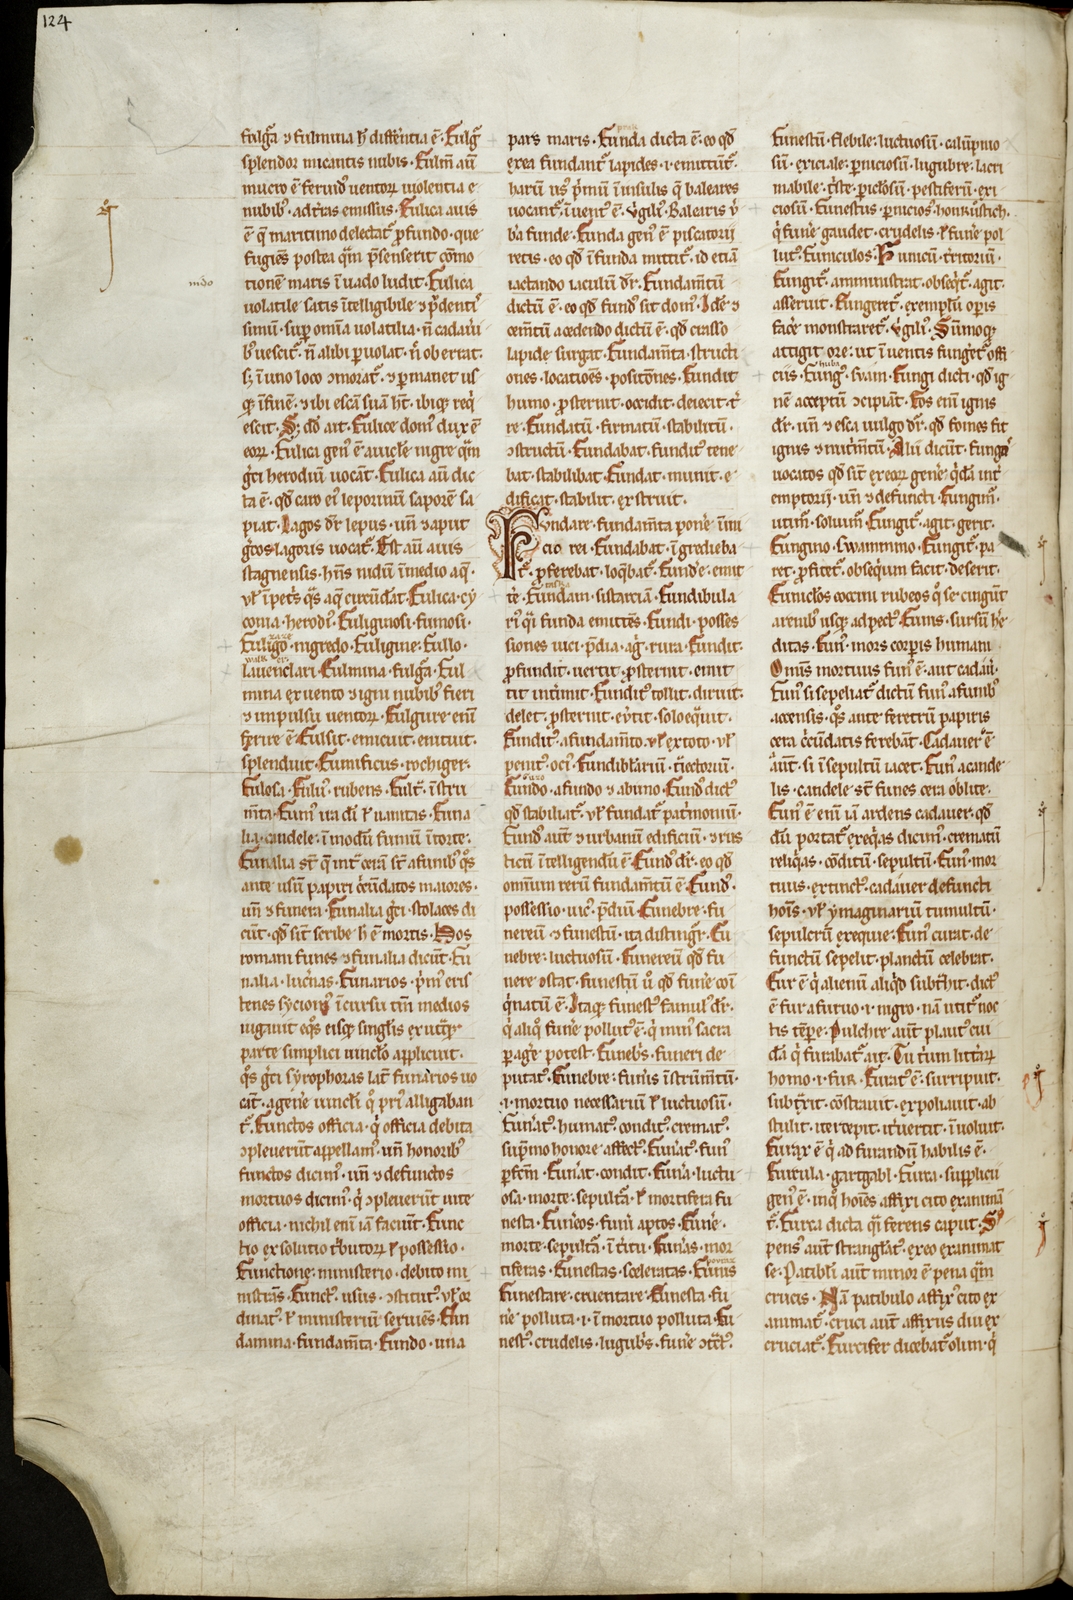 124
fulgᷓa ⁊ fulmina h̄ differentia ē. Fulgᷓ
splendor micantis nubis. Fulm̄ aū
mucro ē feruidꝰ uentoꝝ uiolentia e
nubibꝰ ad t̄ras emissus. Fulica auis
ē q̄ maritimo delectatᷓ ꝓfundo. que
fugiēs postea qᷓm p̄senserit cōmo
tionē maris ī uado ludit. Fulica
uolatile satis ītelligibile ⁊ p̄dentiꝰ
simū. suꝑ om̄ia uolatilia. n̄ cadau̓i
bꝰ uescitᷓ. n̄ alibi ꝑuolat. n̄ oberrat.
sꝫ ī uno loco ꝯmoratᷓ. ⁊ ꝑmanet us
qꝫ ī finē. ⁊ ibi escā suā ht̄. ibiqꝫ req̓
escit. Fulice domꝰ dux ē
eoꝝ. Fulica genꝰ ē auiclē nigre qᷓm
gͥci herodiū uocāt. Fulica aū dic
ta ē. qd̄ caro eiꝰ leporinū saporē sa
piat. Lagos dr̄ lepus. un̄ ⁊ aput
gͥcos lagois uocatᷓ. Est aū auis
stagnensis. hn̄s nidū ī medio aqᷓ.
ul̓ ī pet̓s qᷓs aqᷓ circūdāt. Fulica. cy
conia. herodꝰ. Fuliginosi. fumosi.
Fuligo. nigredo. Fuligine. Fullo.
Lauenclari. Fulmina. fulgᷓa. Ful
mina ex uento ⁊ igni nubibꝰ fieri
⁊ impulsu uentoꝝ. Fulgure enī
ferire ē. Fulsit. emicuit. enituit.
splenduit. Fumificus. rochiger.
Fulosa. Fuluꝰ. rubens. Fult̄. īstru
m̄ta. Fumꝰ ira dī l̓ uanitas. Funa
lia. candele. ī modū funiū ītorte.
Funalia st̄ q̄ int̓ cerā st̄ a funibꝰ qͦs
ante usū papiri cc̄ūdatos maiores.
un̄ ⁊ funera. Funalia gͥci. scolaces di
cūt. qd̄ sīt scribe h̄ ē mortis. Hos
romani funes ⁊ funalia dicūt. Fu
nalia. luc̓nas. Funarios. pͥmꝰ eris
tenes sycioniꝰ ī cursu tm̄ medios
iugauit eqͦs eisqꝫ singl̓is ex utᷓqꝫ
parte simplici uinclo applicuit.
qͦs gͥci syrophoras lat̄ funarios uo
cāt. a gene uincli qͦ pͥriꝰ alligaban
tᷓ. Functos officia. qͥ officia debita
ꝯpleuerūt appellamꝰ. un̄ honoribꝰ
functos dicimꝰ. un̄ ⁊ defunctos
mortuos dicimꝰ. qͥ ꝯpleuerūt uite
officia. nichil enī iā faciūt. Func
tio exsolutio tͥbutoꝝ l̓ possessio.
Functione. ministerio. debito mi
nistrās. Functꝰ. usus. ꝯstitutꝰ. ul̓ or
dinatꝰ. l̓ ministeriū seruiēs. Fun
damina. fundam̄ta. Fundo. una
pars maris. Funda dicta ē. eo qd̄
ex ea fundantᷓ lapides. i. emittūtᷓ.
harū usꝰ pͥmū ī insulis q̄ baleares
uocantᷓ. īuentꝰ ē. Uͥgiliꝰ. Balearis u̓
b̓a funde. Funda genꝰ ē piscatorii
retis. eo qd̄ ī funda mittitᷓ. id etiā
iactando iaculū dr̄. Fundam̄tū
dictū ē. eo qd̄ fundꝰ sit domꝰ. Idē ⁊
cem̄tū a cedendo dictū ē. qd̄ crasso
lapide surgat. Fundam̄ta. structi
ones. locatioēs. positiōnes. Fundit
humo. ꝓsternit. occidit. deiecit. tͥ
re. Fundatū. firmatū. stabilitū.
ꝯstructū. Fundabat. funditꝰ tene
bat. stabilibat. Fundat. munit. e
dificat. stabilit. exstruit.
Fundare. fundam̄ta ponē. ī ini
cio rei. Fundabat. īgredieba
tᷓ. ꝓferebat. loq̄batᷓ. Fund̓e. emit
t̓e. Fundam. sistarciā. Fundibula
riꝰ. qͥ funda emittēs. Fundi. posses
siones uici. p̄dia. agͥ. rura. Fundit.
ꝓfundit. uertit. ꝓsternit. emit
tit int̓imit. Funditꝰ. tollit. diruit.
delet. ꝓsternit. eu̓tit. solo eq̄uit.
Funditꝰ. a fundam̄to. ul̓ ex toto. ul̓
penitꝰ. oc̄iꝰ. Fundibl̓ariū. tͥiectoriū.
Fundo. a fundo ⁊ ab uno. Fundꝰ dictꝰ
qd̄ stabiliatᷓ. ul̓ fundatᷓ pat̓moniū.
Fundꝰ. aut̄ ⁊ urbanū edificiū. ⁊ rus
ticū ītelligendū ē. Fundꝰ dr̄. eo qd̄
omniū rerū fundam̄tū ē. Fundꝰ.
possessio. uicꝰ. p̄diū. Funebre. fu
nereū. ⁊ funestū. ita distingᷓr. Fu
nebre. luctuosū. Funereū qd̄ fu
nere ꝯstat. funestū u̓ qd̄ fun̓e coī
q̓natū ē. Itaqꝫ funestꝰ famulꝰ dr̄.
qͥ aliqͦ fun̓e pollutꝰ ē. qͥ minꝰ sacra
ꝑag̓e potest. Funeb̓s. funeri de
putatᷓ. Funebre. fun̓is īstrum̄tū.
i. mortuo necessariū l̓ luctuosū.
Fun̓atꝰ. humatꝰ. conditꝰ. crematꝰ.
sup̄mo honore affectꝰ. Fun̓atᷓ. funꝰ
ꝑfcm̄. Fun̓at. condit. Fun̓a. luctu
osa. morte. sepultᷓa. l̓ mortifera. fu
nesta. Fun̓eos. funi aptos. Fun̓e.
morte. sepultᷓa. ī tͥitu. Fun̓as. mor
tiferas. Funestas. sceleratas. Funis
Funestare. cruentare. Funesta. fu
n̓e polluta. i. ī mortuo polluta. Fu
nestꝰ. crudelis. lugub̓s. fun̓e ꝯt̄ct̄ꝰ.
Funestū. flebile. luctuosū. calūpnio
sū. exiciale. ꝑniciosū. lugubre. lacri
mabile. tͥste. ꝑiclōsū. pestiferū. exi
ciosū. Funestus. ꝑniciosꝰ.
qͥ fun̓e gaudet. crudelis. l̓ fun̓e pol
lutꝰ. Funiculos. Funicū. tͥritoriū.
Fungitᷓ. amministrat. obseqͥtᷓ. agit.
asseruit. Fungeretᷓ. exemplū opis
fac̓e monstraretᷓ. Uͥgiliꝰ. Sūmoqꝫ
attigit ore. ut ī uentis fung̓etᷓ offi
ciis. Fungꝰ. Fungi dicti. qd̄ ig
nē acceptū ꝯcipiāt. Fos enī ignis
dr̄. un̄ ⁊ esca uulgo dr̄. qd̄ fomes sit
ignis ⁊ nutͥm̄tū. Alii dicūt. fungꝰ
uocatos qd̄ sīt ex eoꝝ gene. qͥdā int̓
emptorii. un̄ ⁊ defuncti. Fungimꝰ.
utimꝰ. soluimꝰ. Fungitᷓ. agit. gerit.
Fungino. Swammino. Fungitᷓ. pa
ret. ꝓficetᷓ. obseqͥum facit. deserit.
Funiclōs coccini rubeos qͥ se cingūt
arenibꝰ usqꝫ ad pectꝰ. Funis. sursū he
ditas. Funꝰ. mors corpis humani
Omīs mortuus funꝰ ē. aut cadau̓.
Funꝰ si sepeliatᷓ dictū funꝰ. a funibꝰ
accensis. qͦs ante feretrū papiris
cera cc̄ūdatis ferebāt. Cadauer ē
aūt. si īsepultū iacet. Funꝰ a cande
lis. candele st̄ funes cera oblite.
Funꝰ ē enī iā ardens cadauer. qd̄
dū portatᷓ exeq̓as dicimꝰ. crematū
reliq̓as. cōditū. sepultū. Funꝰ mor
tuus. extinctꝰ. cadauer defuncti
hoīs. ul̓ ymaginariū tumultū.
sepulcrū exequie. Funꝰ curat. de
functū sepelit. planctū celebrat.
Fur ē qͥ alienū aliqͥd subtᷓhit. dictꝰ
ē fur a furuo. i. nigro. nā utitᷓ noc
tis tēpe. Pulchre aut̄ plaut̄ cui
dā qͥ furabatᷓ ait. Tu tͥum litt̓aꝝ
homo. i. fur. Furatꝰ ē. surripuit.
subtͥxit. cōstrauit. expoliauit. ab
stulit. itercepit. it̓uertit. īuoluit.
Furax ē qͥ ad furandū habilis ē.
Furcula. gartgabl. Furca. supplicii
genꝰ ē. inqͦ hoīes affixi cito examinā
tᷓ. Furca dicta qͥ ferens caput.
pensꝰ aut̄ stranglatᷓ. ex eo exanimat
se. Patibl̓i aut̄ minor ē pena qᷓm
crucis. Nā patibulo affixꝰ cito ex
animatᷓ. cruci aut̄ affixus diu ex
cruciatᷓ. Furcifer dicebatᷓ olim. qͥ